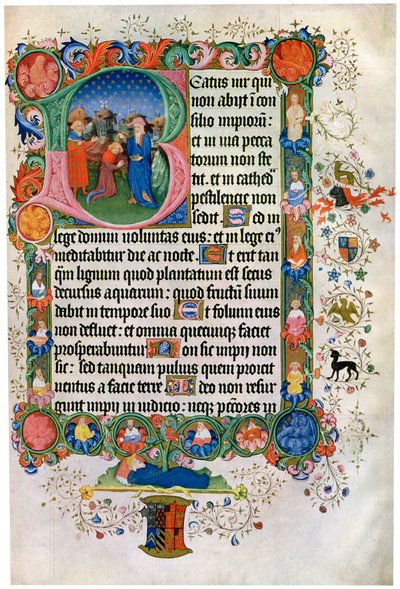 Beatus uir qui
non abijt ī con
silio impiorū:
et in uia pecca
torum non ste
tit. et in cathed
pestilencie non
sedit. Sed in
lege domini uoluntas eius: et in lege ei⁹
meditabitur die ac nocte. Et erit tan
q̄m lignum quod plantatum est secus
decursus aquarum: quod fructū suum
dabit in tempore suo Et folium eius
non defluet: et omnia quecunqꝫ faciet
prosperabuntur Non sic impij non
sic: sed tanquam puluis quem proicit
uentus a facie terre Ideo non resur
gunt impij in iudicio: neqꝫ pcc̄ores in